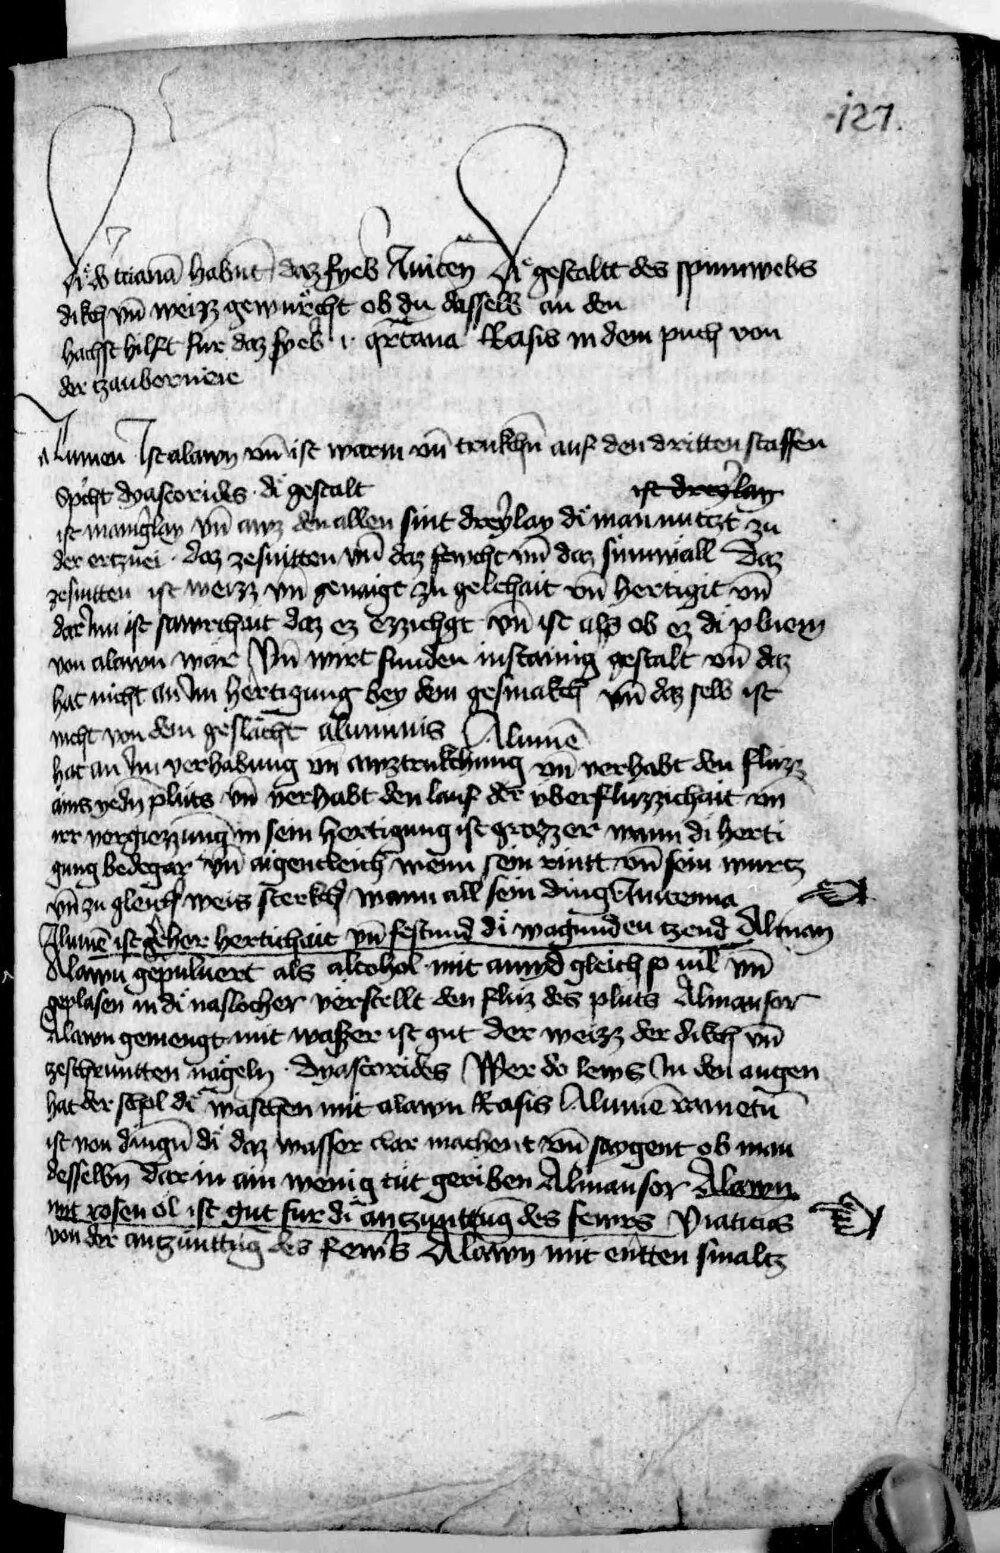 127.
di d' tcianā habnt daz fyeb' Auicen Di gestaltt des spinnwebs
dikch vn̄ weizz gewurcht ob du dasselb an den
hachst hilft fur daz fyeb' .i. q̄rtana Rasis in dem puch von
der tzauberneie
Alumen Ist alawn vn̄ ist warm vn̄ trukchn̄ auf den dritten staffen
Spicht dyascorides . di gestalt ist dreylay
ist manig'lay vn̄ awz den allen sint dreylay di man nutczt zu
der ertznei . daz zesnitten vn̄ daz fewcht vn̄ daz sinwäll Daz
zesnitten ist weizz vn̄ genaigt zu gelchait vn̄ hertigit vn̄
dar Inn ist sawrchait daz ez erzzichgt vn̄ ist als ob ez di pluem
von alawn wär Vn̄ wirt funden in stainig gestalt vn̄ daz
hat nicht an Im hertigung bey dem gesmakch vn̄ daz selb ist
nicht von dem geslächt aluminis Alumē
hat an Im verhabung vn̄ awztrukchung vn̄ verhabt den fluzz
ains yedn̄ pluts vn̄ verhabt den lauf der vberfluzzichait vn̄
irr vergiezzung in sein hertigung ist grozzer wann di herti
gung bedegar vn̄ aigentleich wenn sein rintt vn̄ sein wurtz
vn̄ zu gleich' weis sterkch' wann all sein ding Auicenna
Alumē ist gehor hertichait vn̄ festund di wagunden tzend Alman
Alawn gepuluert als alcohol mit amyd gleich so uil vn̄
geplasen in di naslocher verstellt den fluz des pluts Almansor
Alawn gemengt mit wazzer ist gut der weizz der dikch vn̄
zeschruntten nägeln . dyascorides Wer do lews In den augen
hat der schol di waschen mit alawn Rasis Alumē rametū
ist von dingn̄ di daz wasser clar machent vn̄ saygent ob man
desselbn̄ dar in ain wenig tüt geriben Almansor Alawn
mit rosen öl ist gut fur di anczunttūg des fewrs Viaticus
von der anczunttūg des fewrs Alawn mit entten smaltz